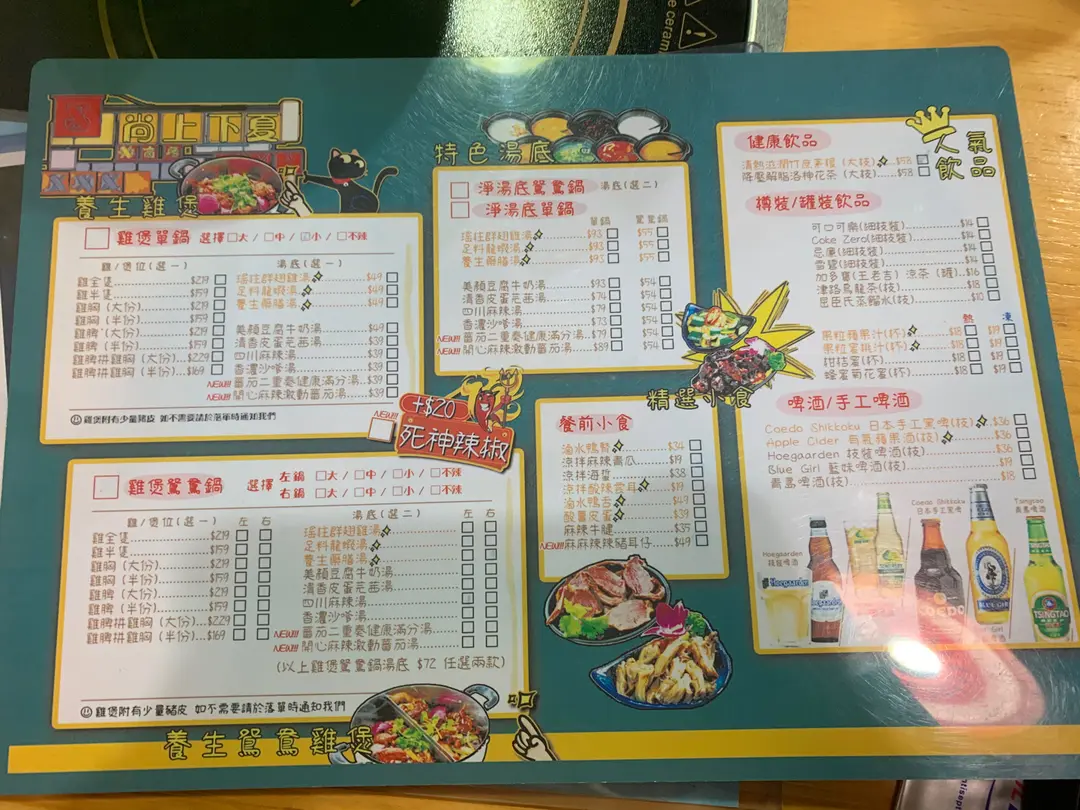 尚上下夏
養生雞煲
雞煲單鍋 選擇 大 / 中 / 小 / 不辣
雞/煲位(選一) 湯底(選一)
雞全隻 $219
雞半隻 $159
雞胸 (大份) $219
雞胸 (半份) $159
雞髀 (大份) $219
雞髀 (半份) $159
雞髀拼雞胸 (大份) $229
雞髀拼雞胸 (半份) $169
瑤柱群翅雞湯 $49
足料龍蝦湯 $49
養生藥膳湯 $49
美顏豆腐牛奶湯 $49
清香皮蛋芫茜湯 $39
四川麻辣湯 $39
香濃沙嗲湯 $39
NEW!!! 蕃茄二重奏健康滿分湯 $39
NEW!!! 開心麻辣激動蕃茄湯 $39
雞煲附有少量豬皮 如不需要請於落單時通知我們
NEW!!!
+$20
死神辣椒
雞煲鴛鴦鍋 選擇
左鍋 大 / 中 / 小 / 不辣
右鍋 大 / 中 / 小 / 不辣
雞/煲位(選一) 左 右 湯底(選二) 左 右
雞全隻 $219
雞半隻 $159
雞胸 (大份) $219
雞胸 (半份) $159
雞髀 (大份) $219
雞髀 (半份) $159
雞髀拼雞胸 (大份) $229
雞髀拼雞胸 (半份) $169
瑤柱群翅雞湯
足料龍蝦湯
養生藥膳湯
美顏豆腐牛奶湯
清香皮蛋芫茜湯
四川麻辣湯
香濃沙嗲湯
NEW!!! 蕃茄二重奏健康滿分湯
NEW!!! 開心麻辣激動蕃茄湯
(以上雞煲鴛鴦鍋湯底 $72 任選兩款)
雞煲附有少量豬皮 如不需要請於落單時通知我們
養生鴛鴦雞煲
特色湯底
淨湯底鴛鴦鍋 湯底(選二)
淨湯底單鍋
單鍋 鴛鴦鍋
瑤柱群翅雞湯 $93 $55
足料龍蝦湯 $93 $55
養生藥膳湯 $93 $55
美顏豆腐牛奶湯 $93 $54
清香皮蛋芫茜湯 $74 $54
四川麻辣湯 $79 $54
香濃沙嗲湯 $73 $54
NEW!!! 蕃茄二重奏健康滿分湯 $79 $54
NEW!!! 開心麻辣激動蕃茄湯 $89 $54
精選小食
餐前小食
滷水鴨腎 $34
涼拌麻辣青瓜 $19
涼拌海蜇 $38
涼拌酸辣雲耳 $19
滷水鴨舌 $49
酸薑皮蛋 $39
麻辣牛𦟌 $35
NEW!!! 麻麻辣辣豬耳仔 $49
人氣飲品
健康飲品
清熱滋潤竹蔗茅根 (大枝) $58
降壓解脂洛神花茶 (大枝) $58
樽裝/罐裝飲品
可口可樂(細枝裝) $14
Coke Zero(細枝裝) $14
忌廉(細枝裝) $14
雪碧(細枝裝) $14
加多寶(王老吉) 涼茶 (罐) $16
津路烏龍茶(枝) $18
屈臣氏蒸餾水(枝) $10
熱 凍
果粒蘋果汁(杯) $18 $19
果粒蜜桃汁(杯) $18 $19
柑桔蜜(杯) $18 $19
蜂蜜菊花蜜(杯) $18 $19
啤酒/手工啤酒
Coedo Shikkoku 日本手工黑啤(枝) $36
Apple Cider 有氣蘋果酒(枝) $36
Hoegaarden 枝裝啤酒(枝) $36
Blue Girl 藍妹啤酒(枝) $19
青島啤酒(枝) $18
Hoegaarden
枝裝啤酒
Coedo Shikkoku
日本手工黑啤
Tsingtao
青島啤酒
Hoegaarden
COEDO
BLUE GIRL
TSINGTAO